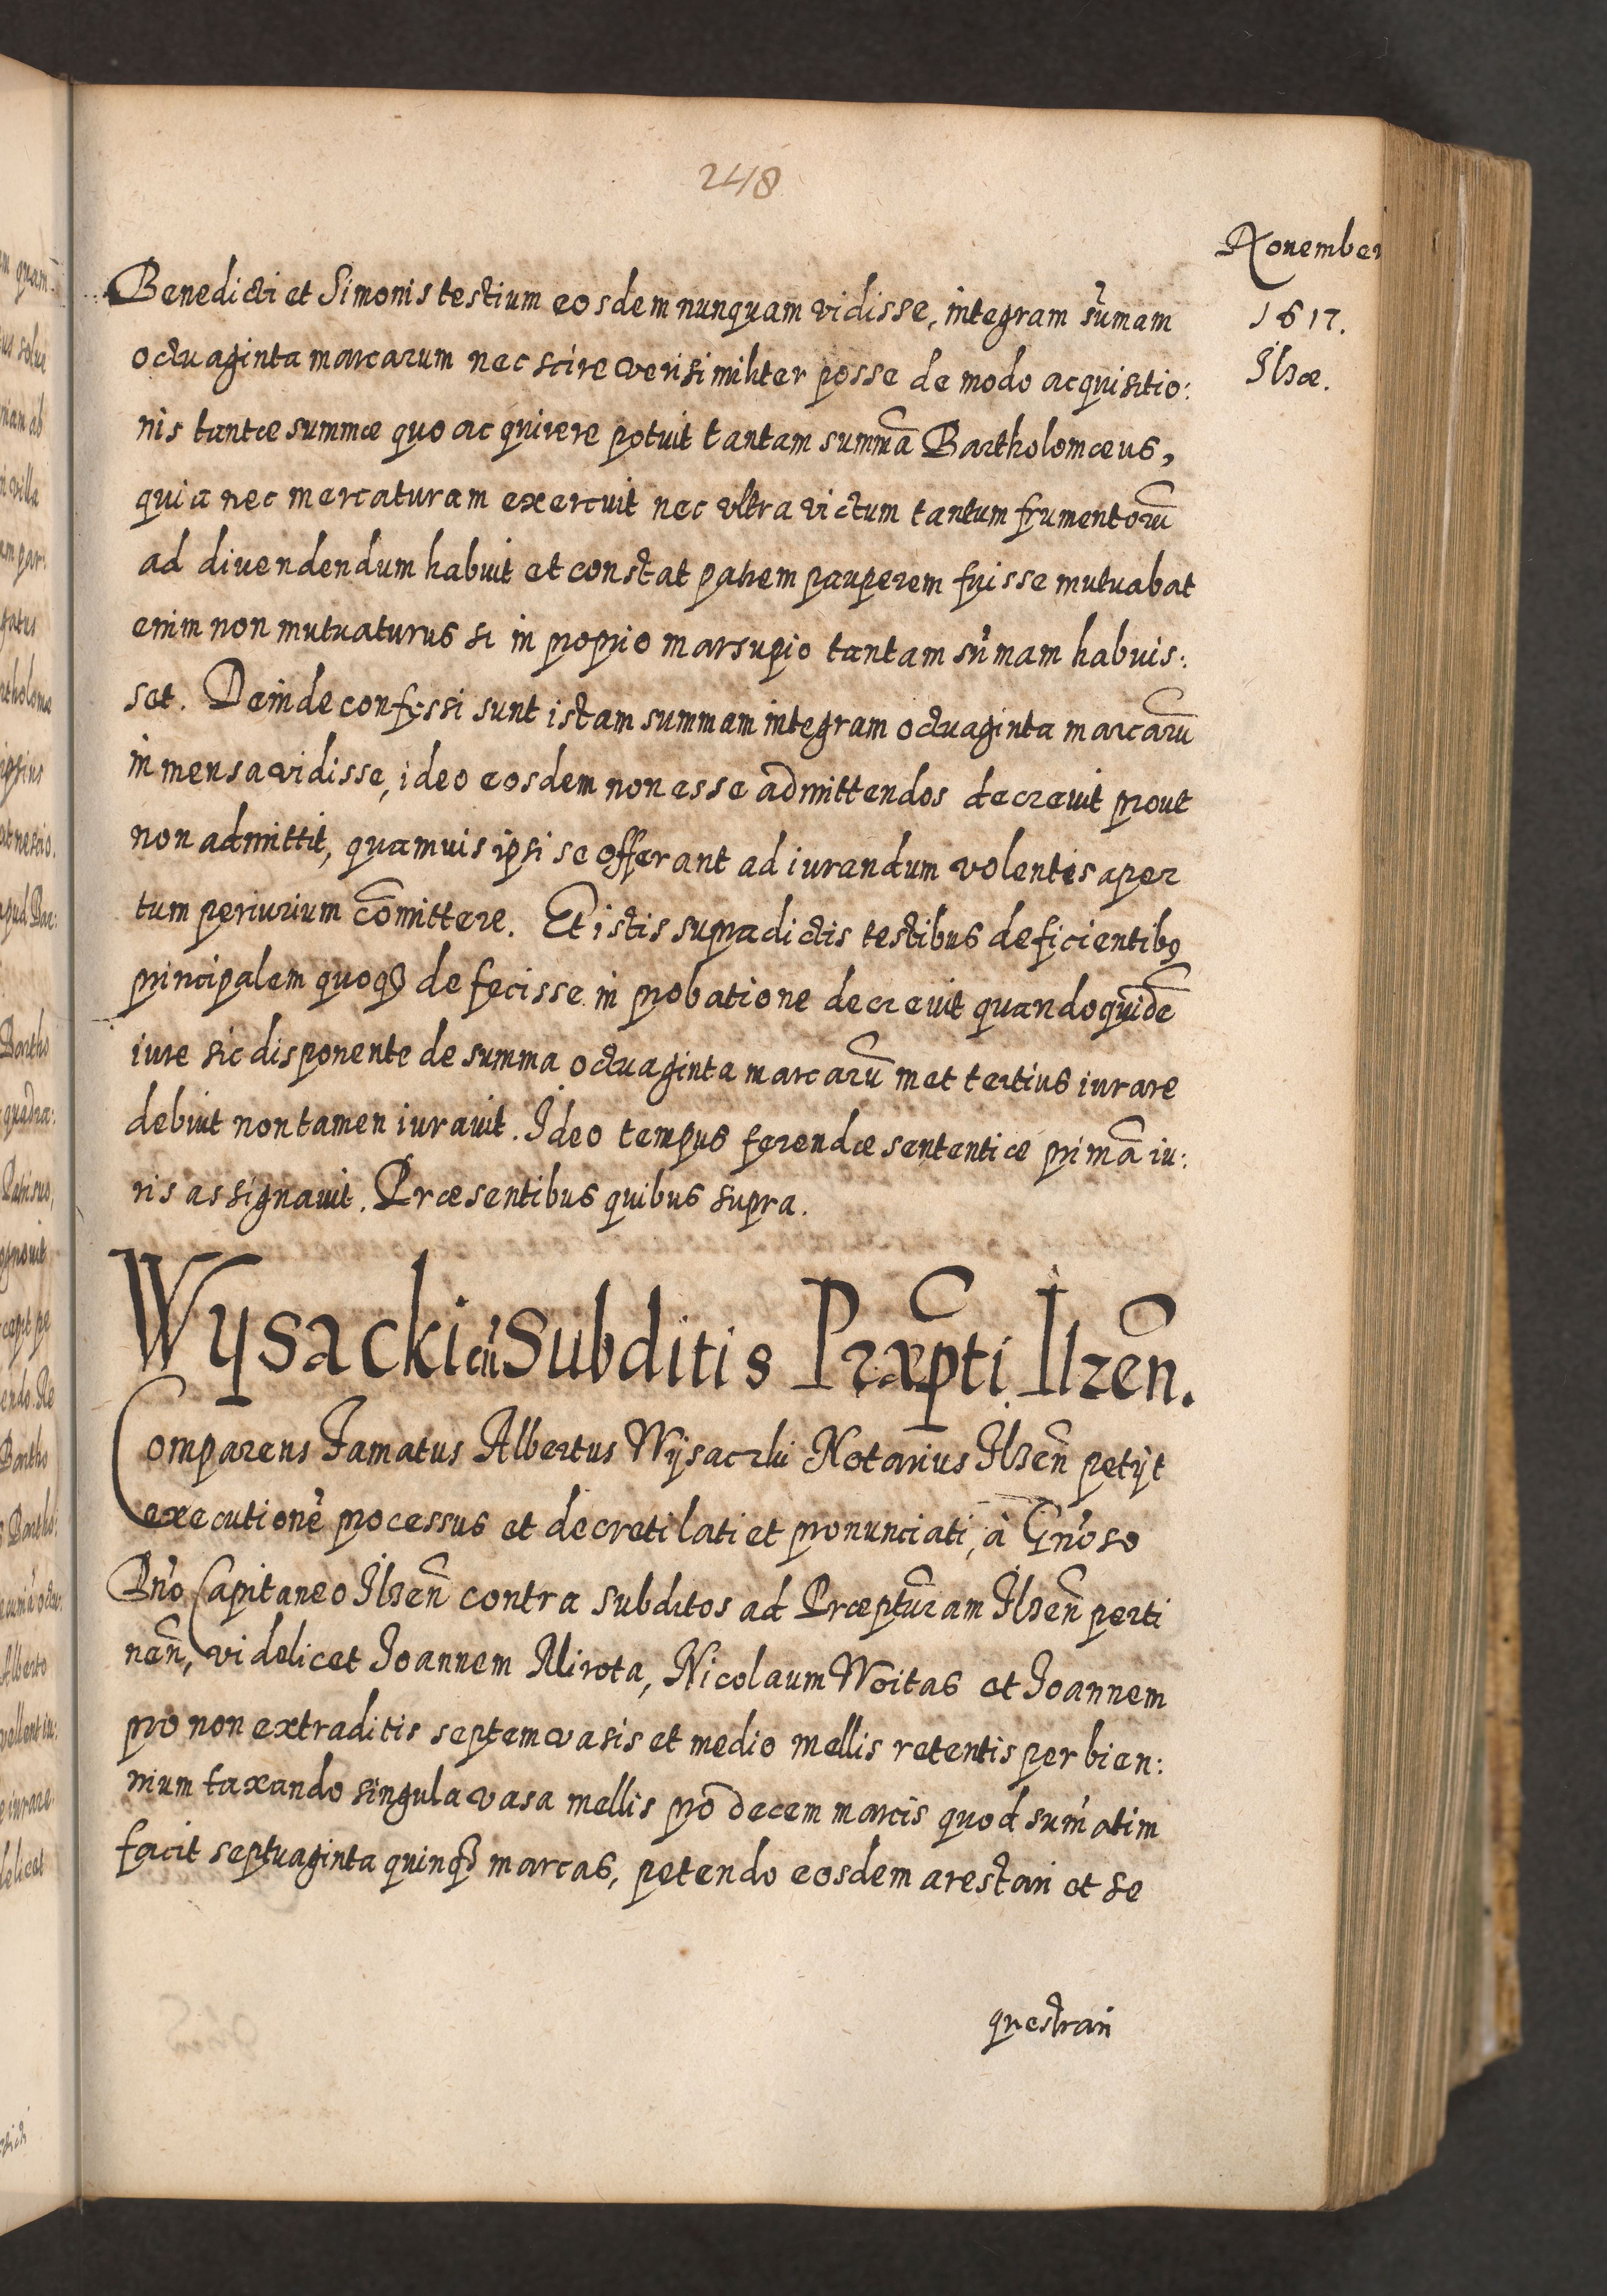 248
November
1617.
Ilzæ.
Benedicti et Simonis testium eosdem nunquam vidisse, integram sum̃am
octuaginta marcarum nec scire verisimiliter posse de modo acquisitio:
nis tantæ summæ quo acquirere potuit tantam summã Bartholomæus,
quia nec mercaturam exercuit nec ultra victum tantum frumentorũ
ad divendendum habuit et constat patrem pauperem fuisse mutuabat
enim non mutuaturus si in proprio marsupio tantam sum̃am habuis:
set. Deinde confessi sunt istam summam integram octuaginta marcarũ
in mensa vidisse, ideo eosdem non esse admittendos decrevit prout
non admittit, quamuis ipsi se offerant ad iurandum volentes aper
tum periurium cõmittere. Et istis supradictis testibus deficientibꝯ
principalem quoqꝫ defecisse in probatione decrevit quandoquidẽ
iure sic disponente de summa octuaginta marcarũ met tertius iurare
debuit non tamen iuravit. Ideo tempus ferendæ sententiæ primã iu:
ris assignavit. Præsentibus quibus supra.
Wysacki cũ Subditis Præp̃ti Ilzeñ.
Comparens Famatus Albertus Wysaczki Notarius Ilzeñ petyt
executionẽ processus et decreti lati et pronunciati, à Gñoso
Dño Capitaneo Ilzeñ contra subditos ad Præpt̃uram Ilzeñ perti
neñ, videlicet Joannem Mirota, Nicolaum Woitas et Joannem
pro non extraditis septem vasis et medio mellis retentis per bien:
nium taxando singula vasa mellis pro decem marcis quod sum̃atim
facit septuaginta quinqꝫ marcas, petendo eosdem arestari et se
questrari